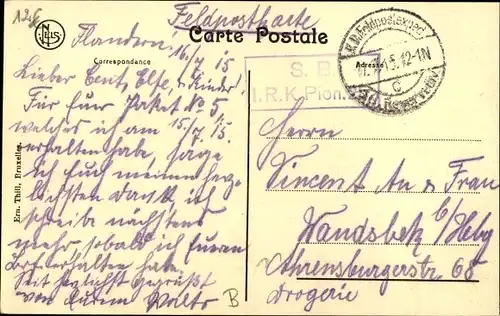 125
Feldpostkarte
NELS
Carte Postale
Flandern, 16/7 15
Correspondance
Adresse
K.D. Feldpostexped.
17.7.15. 12-1N
c
S. B.
I.R.K. Pion.
Lieber Cent, Else, & Kinder!
Für Euer Paket No 5
welches ich am 15/7. 15
erhalten habe, sage
ich Euch meinen herz-
lichsten Dank, ich
schreibe nächstens
mehr, sobald ich Euren
Brief erhalten habe.
Seit herzlichst gegrüßt
von Eurem Walter
Herrn
Vincent An & Frau
Wandsbek b/Hbg
Ahrensburgerstr. 68
Drogerie
B
Ern. Thill, Bruxelles